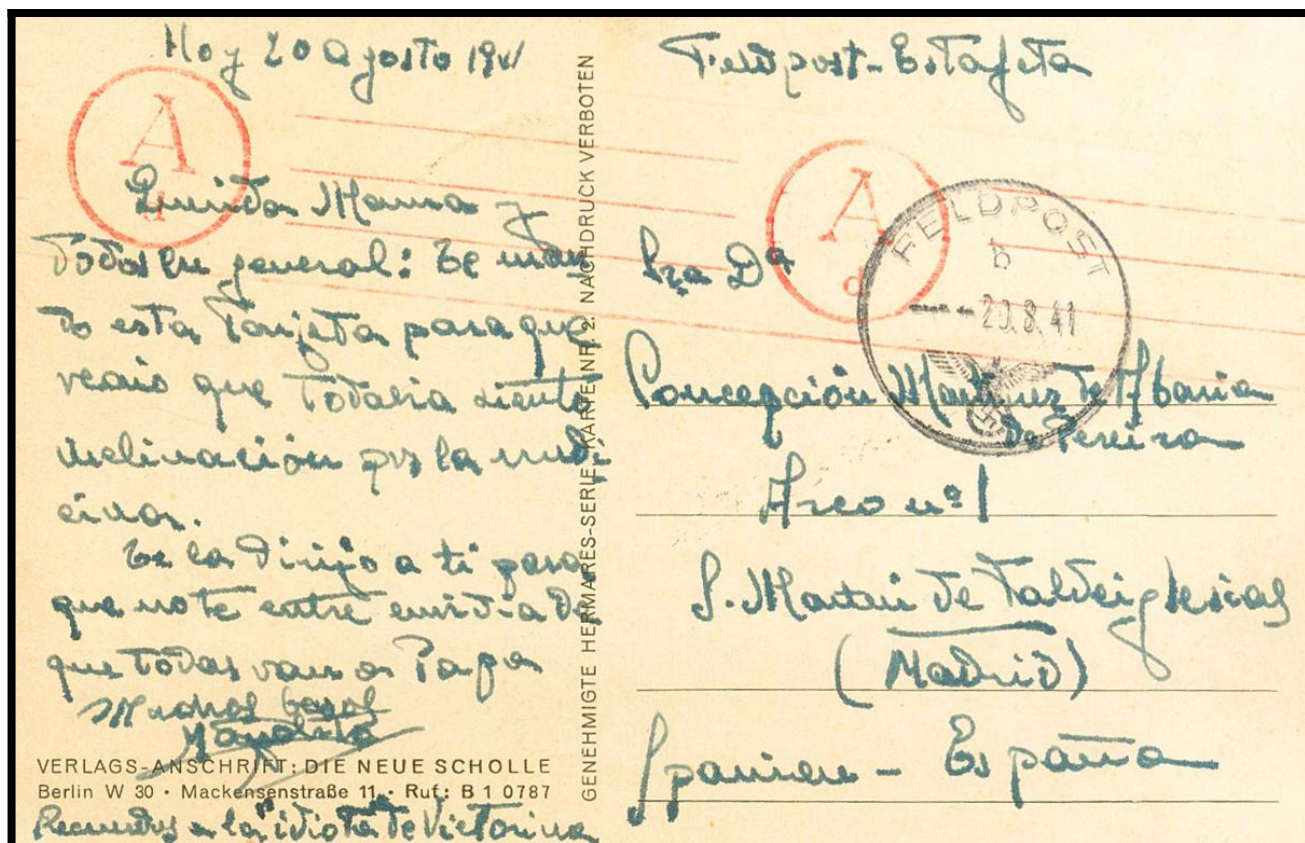 Hoy 20 Agosto 1941
Querida Mama y
Todos en general: Te man
do esta Tarjeta para que
veais que Todavia siento
inclinación por la medi
cina.
Te la Dirijo a ti para
que no te entre envidia de
que Todas van a Papa
Muchos besos
VERLAGS-ANSCHRIFT: DIE NEUE SCHOLLE
Berlin W 30 · Mackensenstraße 11 · Ruf: B 1 0787
Recuerdos a la idiota de Victorina
GENEHMIGTE HERMARES-SERIE, KARTE NR. 2. NACHDRUCK VERBOTEN
Feldpost-Estafeta
A
d
A
d
FELDPOST
b
20.8.41
Sra Dª
Concepción Martinez de
de Pereira
Arco nº 1
S. Martin de Valdeiglesias
(Madrid)
Spanien - España